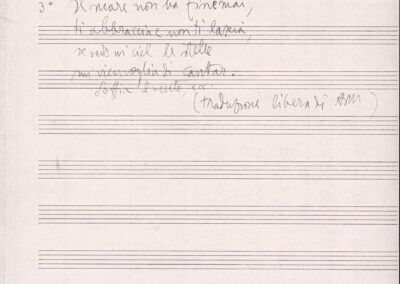 3° Il mare non ha fine mai,
ti abbraccia e non ti lascia,
se vedo in ciel le stelle
mi vien voglia di cantar.
Soffia il vento, ecc.
(traduzione libera di ABM.)